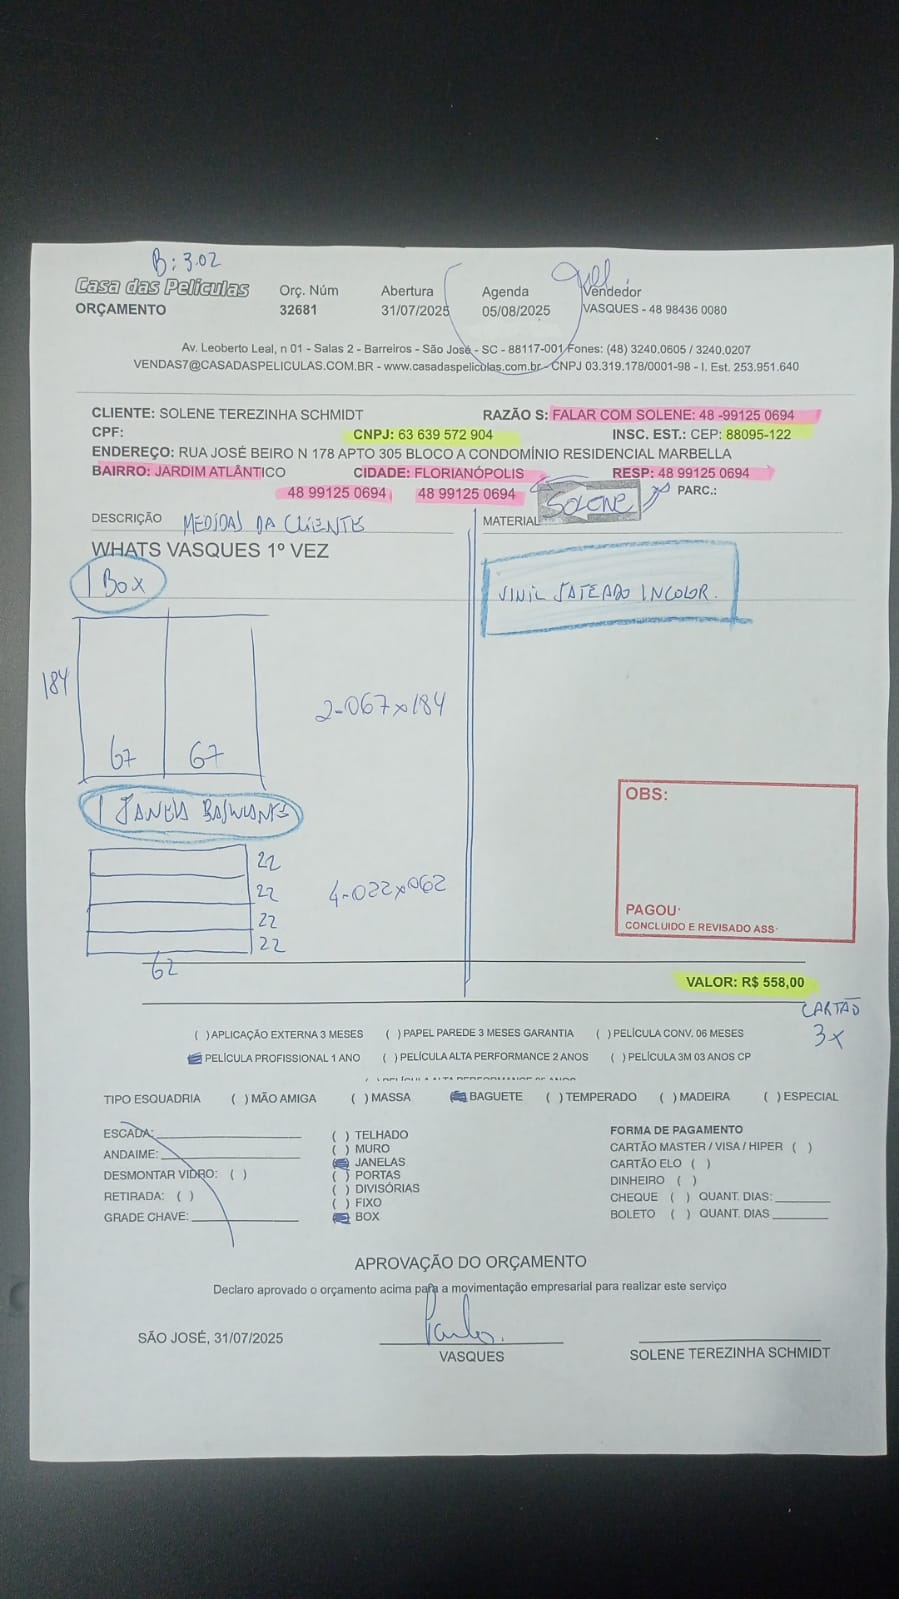 B: 3.02
Casa das Películas Orç. Núm Abertura Agenda Vendedor
ORÇAMENTO 32681 31/07/2025 05/08/2025 VASQUES - 48 98436 0080
Av. Leoberto Leal, n 01 - Salas 2 - Barreiros - São José - SC - 88117-001 Fones: (48) 3240.0605 / 3240.0207
VENDAS7@CASADASPELICULAS.COM.BR - www.casadaspeliculas.com.br - CNPJ 03.319.178/0001-98 - I. Est. 253.951.640
CLIENTE: SOLENE TEREZINHA SCHMIDT RAZÃO S: FALAR COM SOLENE: 48 -99125 0694
CPF: CNPJ: 63 639 572 904 INSC. EST.: CEP: 88095-122
ENDEREÇO: RUA JOSÉ BEIRO N 178 APTO 305 BLOCO A CONDOMÍNIO RESIDENCIAL MARBELLA
BAIRRO: JARDIM ATLÂNTICO CIDADE: FLORIANÓPOLIS RESP: 48 99125 0694
48 99125 0694 48 99125 0694 SOLENE PARC.:
DESCRIÇÃO MEDIDAS DA CLIENTE MATERIAL
WHATS VASQUES 1º VEZ
1 BOX VINIL JATEADO INCOLOR.
184
2-067x184
67 67
OBS:
1 JANELA BASCULANTE
22
22 4-022x062
22
22
62
PAGOU:
CONCLUIDO E REVISADO ASS:
VALOR: R$ 558,00
CARTÃO
3x
( ) APLICAÇÃO EXTERNA 3 MESES ( ) PAPEL PAREDE 3 MESES GARANTIA ( ) PELÍCULA CONV. 06 MESES
PELÍCULA PROFISSIONAL 1 ANO ( ) PELÍCULA ALTA PERFORMANCE 2 ANOS ( ) PELÍCULA 3M 03 ANOS CP
TIPO ESQUADRIA ( ) MÃO AMIGA ( ) MASSA BAGUETE ( ) TEMPERADO ( ) MADEIRA ( ) ESPECIAL
ESCADA: ( ) TELHADO FORMA DE PAGAMENTO
ANDAIME: ( ) MURO CARTÃO MASTER / VISA / HIPER ( )
JANELAS CARTÃO ELO ( )
DESMONTAR VIDRO: ( ) ( ) PORTAS DINHEIRO ( )
RETIRADA: ( ) ( ) DIVISÓRIAS CHEQUE ( ) QUANT. DIAS:
( ) FIXO
GRADE CHAVE: BOX BOLETO ( ) QUANT. DIAS
APROVAÇÃO DO ORÇAMENTO
Declaro aprovado o orçamento acima para a movimentação empresarial para realizar este serviço
SÃO JOSÉ, 31/07/2025
VASQUES SOLENE TEREZINHA SCHMIDT